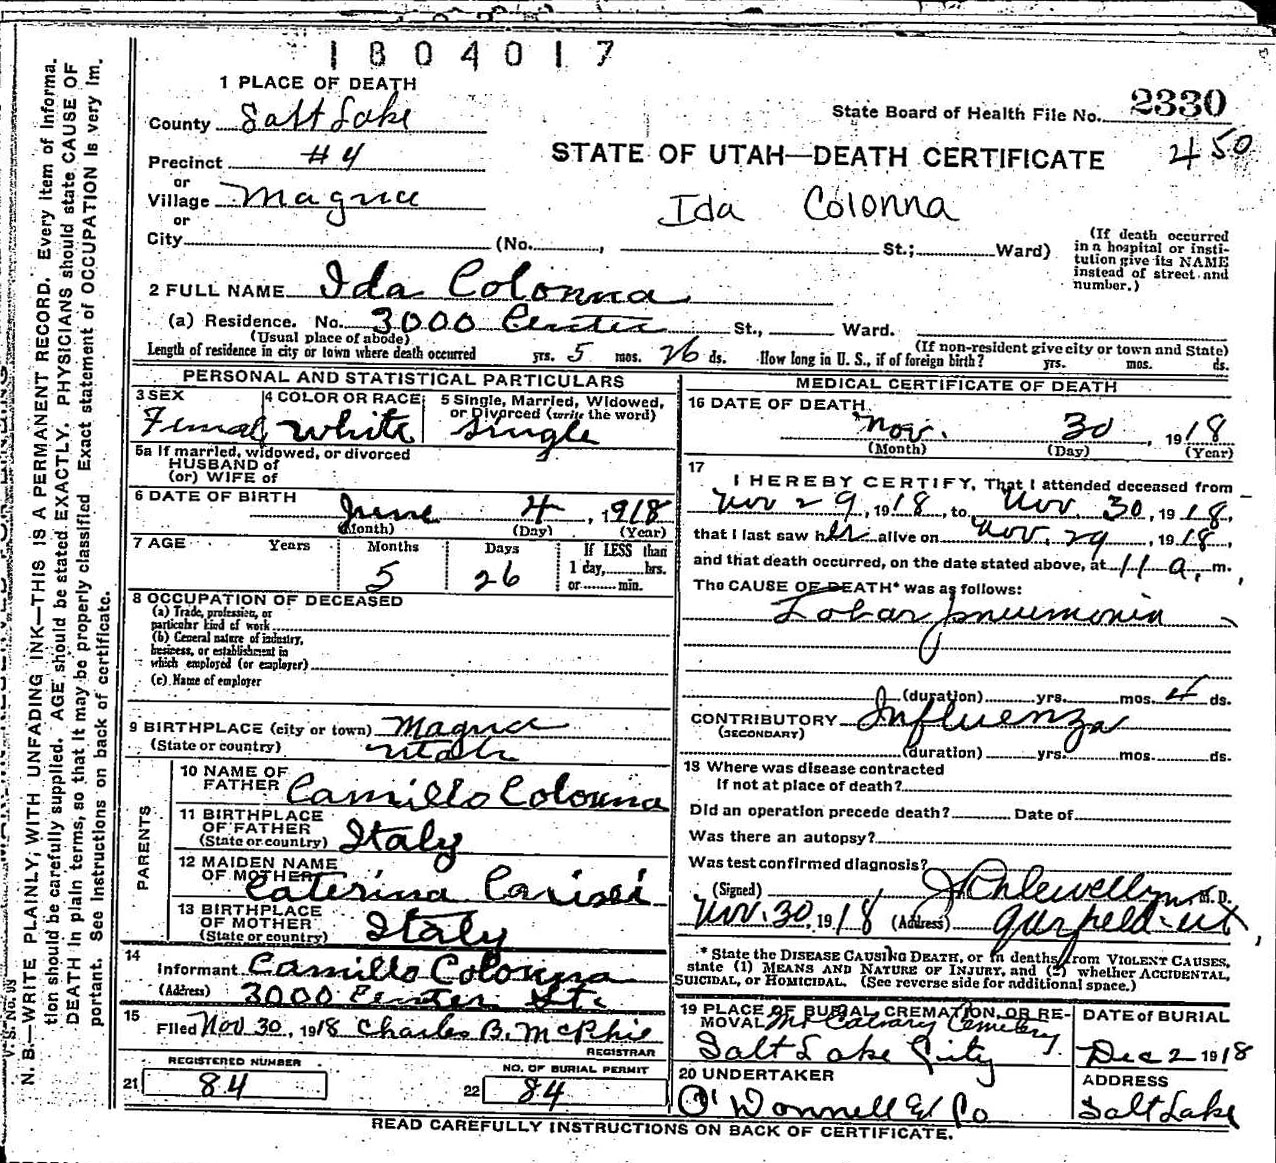 1804017
1 PLACE OF DEATH
County Salt Lake
State Board of Health File No. 2330
Precinct #4
STATE OF UTAH—DEATH CERTIFICATE
450
or
Village Magna
Ida Colonna
or
City (No. , St.; Ward)
(If death occurred
in a hospital or insti-
tution give its NAME
instead of street and
number.)
2 FULL NAME Ida Colonna
(a) Residence. No. 3000 Center St., Ward.
(Usual place of abode)
(If non-resident give city or town and State)
Length of residence in city or town where death occurred yrs. 5 mos. 26 ds. How long in U. S., if of foreign birth? yrs. mos. ds.
PERSONAL AND STATISTICAL PARTICULARS
3 SEX
Female
4 COLOR OR RACE
White
5 Single, Married, Widowed,
or Divorced (write the word)
Single
5a If married, widowed, or divorced
HUSBAND of
(or) WIFE of
6 DATE OF BIRTH
June 4, 1918
(Month) (Day) (Year)
7 AGE Years Months Days If LESS than
5 26 1 day, hrs.
or min.
8 OCCUPATION OF DECEASED
(a) Trade, profession, or
particular kind of work
(b) General nature of industry,
business, or establishment in
which employed (or employer)
(c) Name of employer
9 BIRTHPLACE (city or town) Magna
(State or country) Utah
PARENTS
10 NAME OF
FATHER Camillo Colonna
11 BIRTHPLACE
OF FATHER
(State or country) Italy
12 MAIDEN NAME
OF MOTHER Caterina
13 BIRTHPLACE
OF MOTHER
(State or country) Italy
14
Informant Camillo Colonna
(Address) 3000 Center St.
15
Filed Nov 30, 1918 Charles B. McPhie
REGISTRAR
REGISTERED NUMBER
21 84
NO. OF BURIAL PERMIT
22 84
MEDICAL CERTIFICATE OF DEATH
16 DATE OF DEATH
Nov. 30, 1918
(Month) (Day) (Year)
17
I HEREBY CERTIFY, That I attended deceased from
Nov 29, 1918, to Nov 30, 1918,
that I last saw her alive on Nov. 29, 1918,
and that death occurred, on the date stated above, at 11 a, m.
The CAUSE OF DEATH* was as follows:
Lobar pneumonia
(duration) yrs. mos. 4 ds.
CONTRIBUTORY Influenza
(SECONDARY)
(duration) yrs. mos. ds.
18 Where was disease contracted
If not at place of death?
Did an operation precede death? Date of
Was there an autopsy?
Was test confirmed diagnosis?
(Signed) M. D.
Nov. 30, 1918 (Address) Garfield-Ut
* State the DISEASE CAUSING DEATH, or in deaths from VIOLENT CAUSES,
state (1) MEANS AND NATURE OF INJURY, and (2) whether ACCIDENTAL,
SUICIDAL, or HOMICIDAL. (See reverse side for additional space.)
19 PLACE OF BURIAL, CREMATION, OR RE-
MOVAL Mt Calvary Cemetery
Salt Lake City
DATE of BURIAL
Dec 2 1918
20 UNDERTAKER
O'Donnell & Co
ADDRESS
Salt Lake
READ CAREFULLY INSTRUCTIONS ON BACK OF CERTIFICATE.
N. B.—WRITE PLAINLY, WITH UNFADING INK—THIS IS A PERMANENT RECORD. Every item of informa-
tion should be carefully supplied. AGE should be stated EXACTLY. PHYSICIANS should state CAUSE OF
DEATH in plain terms, so that it may be properly classified. Exact statement of OCCUPATION is very im-
portant. See instructions on back of certificate.